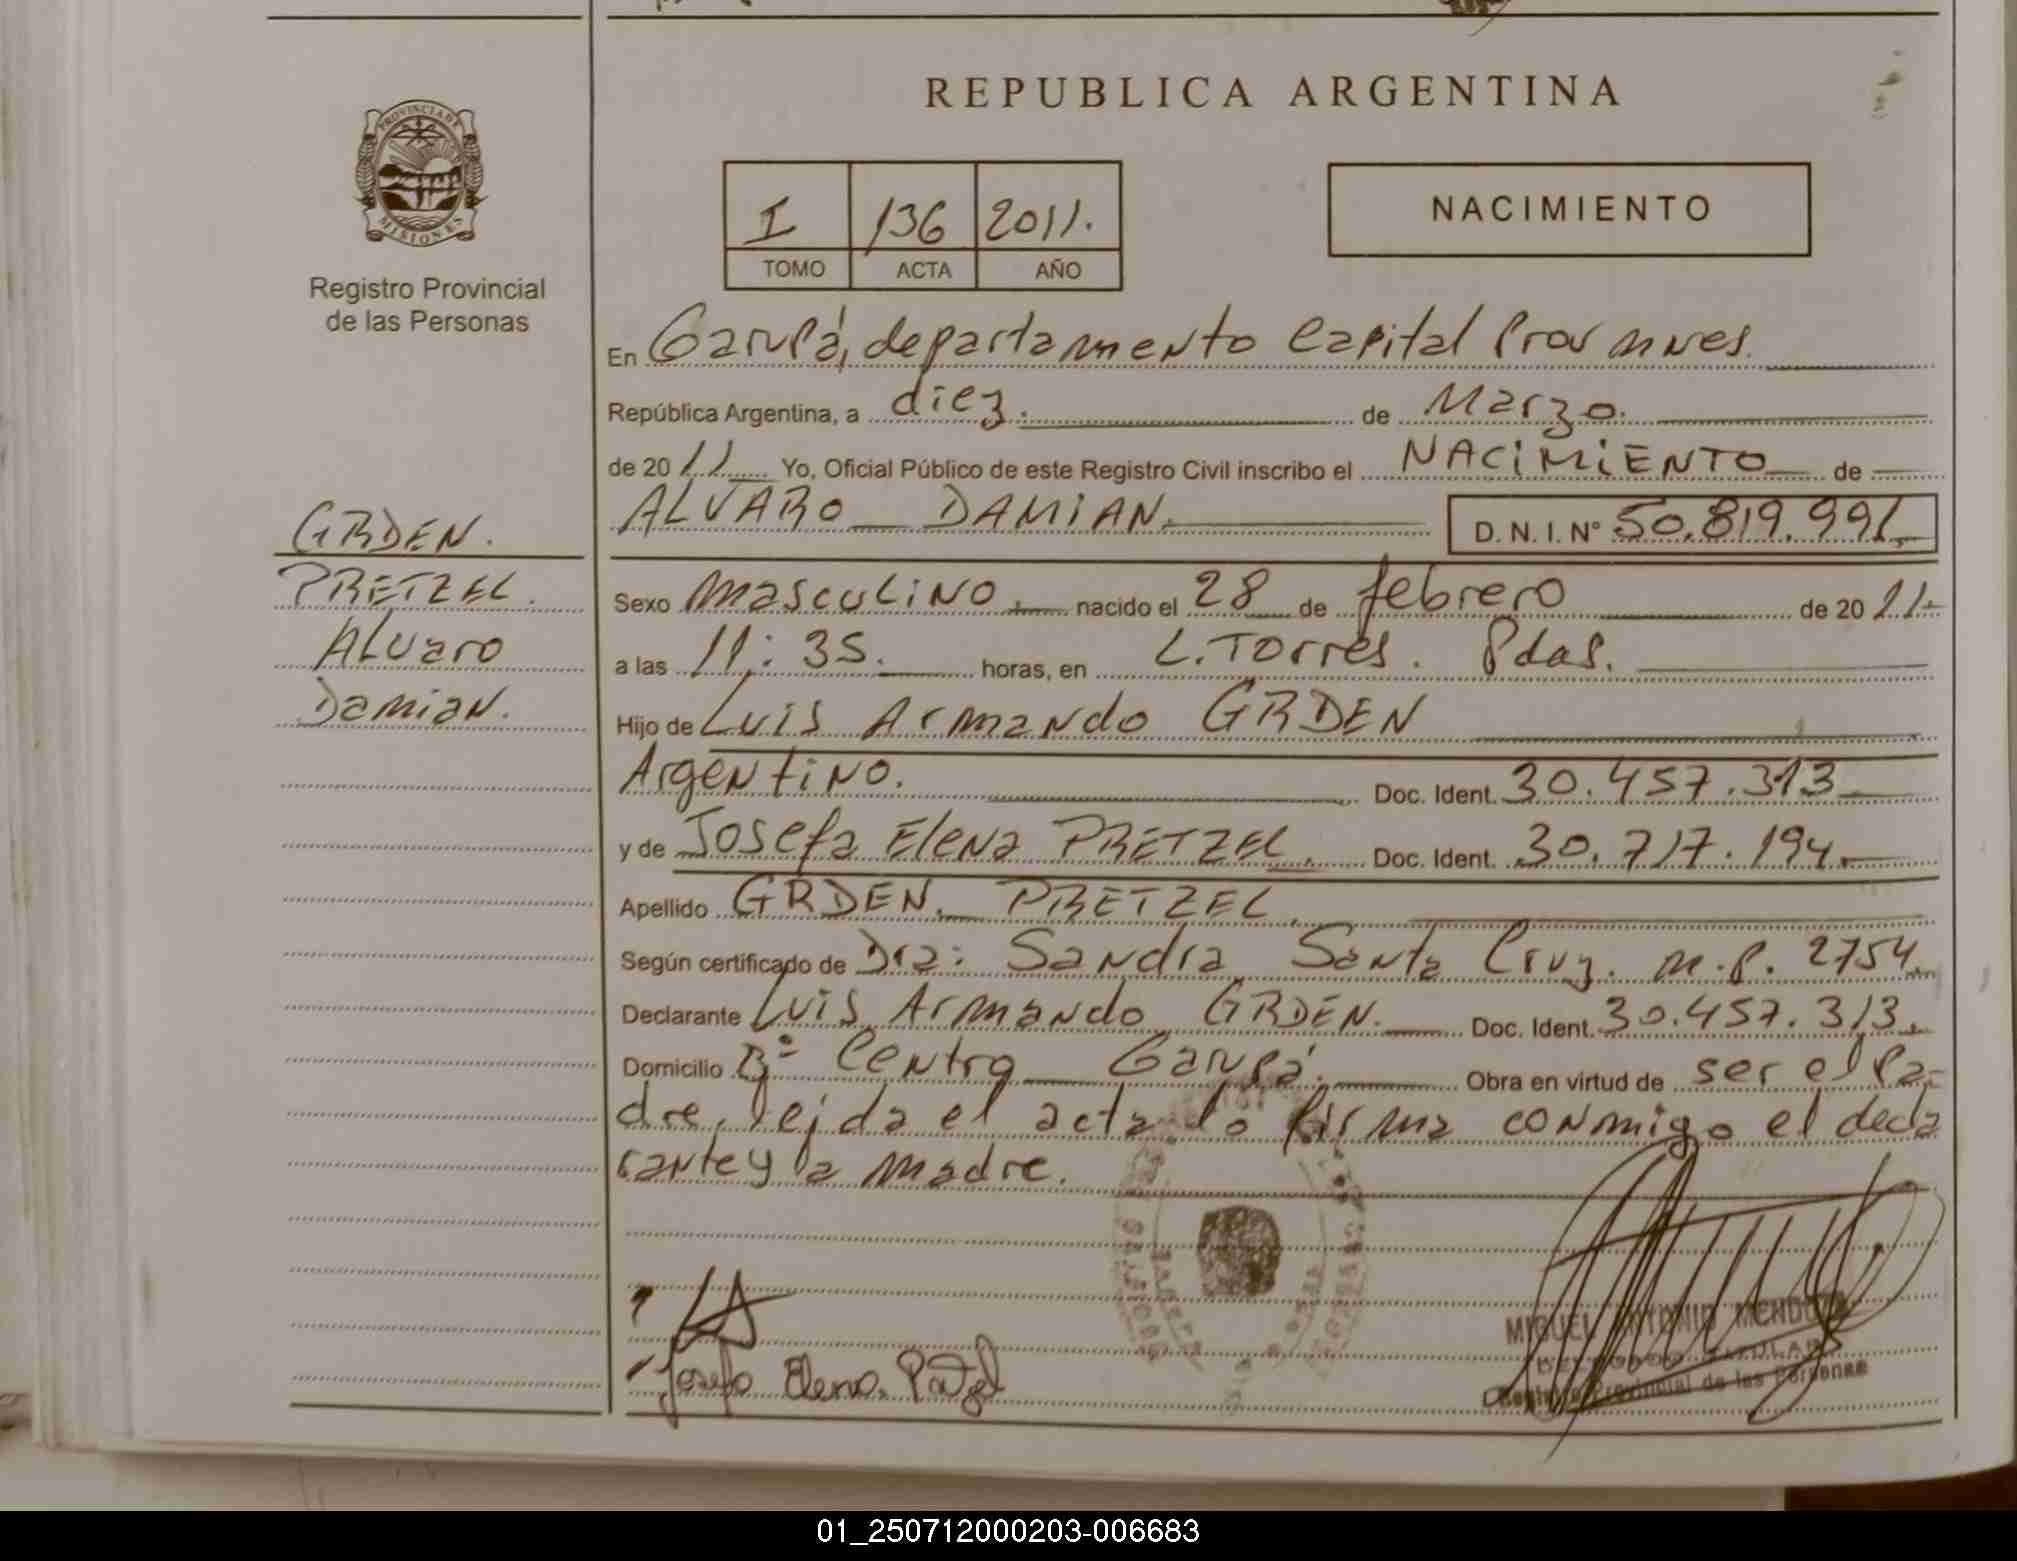 PROVINCIA DE
MISIONES
Registro Provincial
de las Personas
GRDEN.
PRETZEL.
Alvaro
Damian.
REPUBLICA ARGENTINA
I 136 2011.
TOMO ACTA AÑO
NACIMIENTO
En Garupá, departamento Capital Prov mnes.
República Argentina, a diez. de Marzo.
de 2011 Yo, Oficial Público de este Registro Civil inscribo el NACIMIENTO de
ALVARO DAMIAN. D. N. I. N° 50.819.991.
Sexo masculino. nacido el 28 de febrero de 2011
a las 11:35. horas, en L. Torres. Pdas.
Hijo de Luis Armando GRDEN
Argentino. Doc. Ident. 30.457.313
y de Josefa Elena PRETZEL. Doc. Ident. 30.717.194.
Apellido GRDEN. PRETZEL.
Según certificado de Dra: Sandra Santa Cruz. m.p. 2754
Declarante Luis Armando GRDEN. Doc. Ident. 30.457.313.
Domicilio Bº Centro Garupá. Obra en virtud de ser el Pa-
dre, leida el acta lo firma conmigo el decla
rante y la madre.
Josefa Elena Pretzel
MIGUEL ANTONIO MENDOZA
DELEGADO TITULAR
Registro Provincial de las Personas
01_250712000203-006683